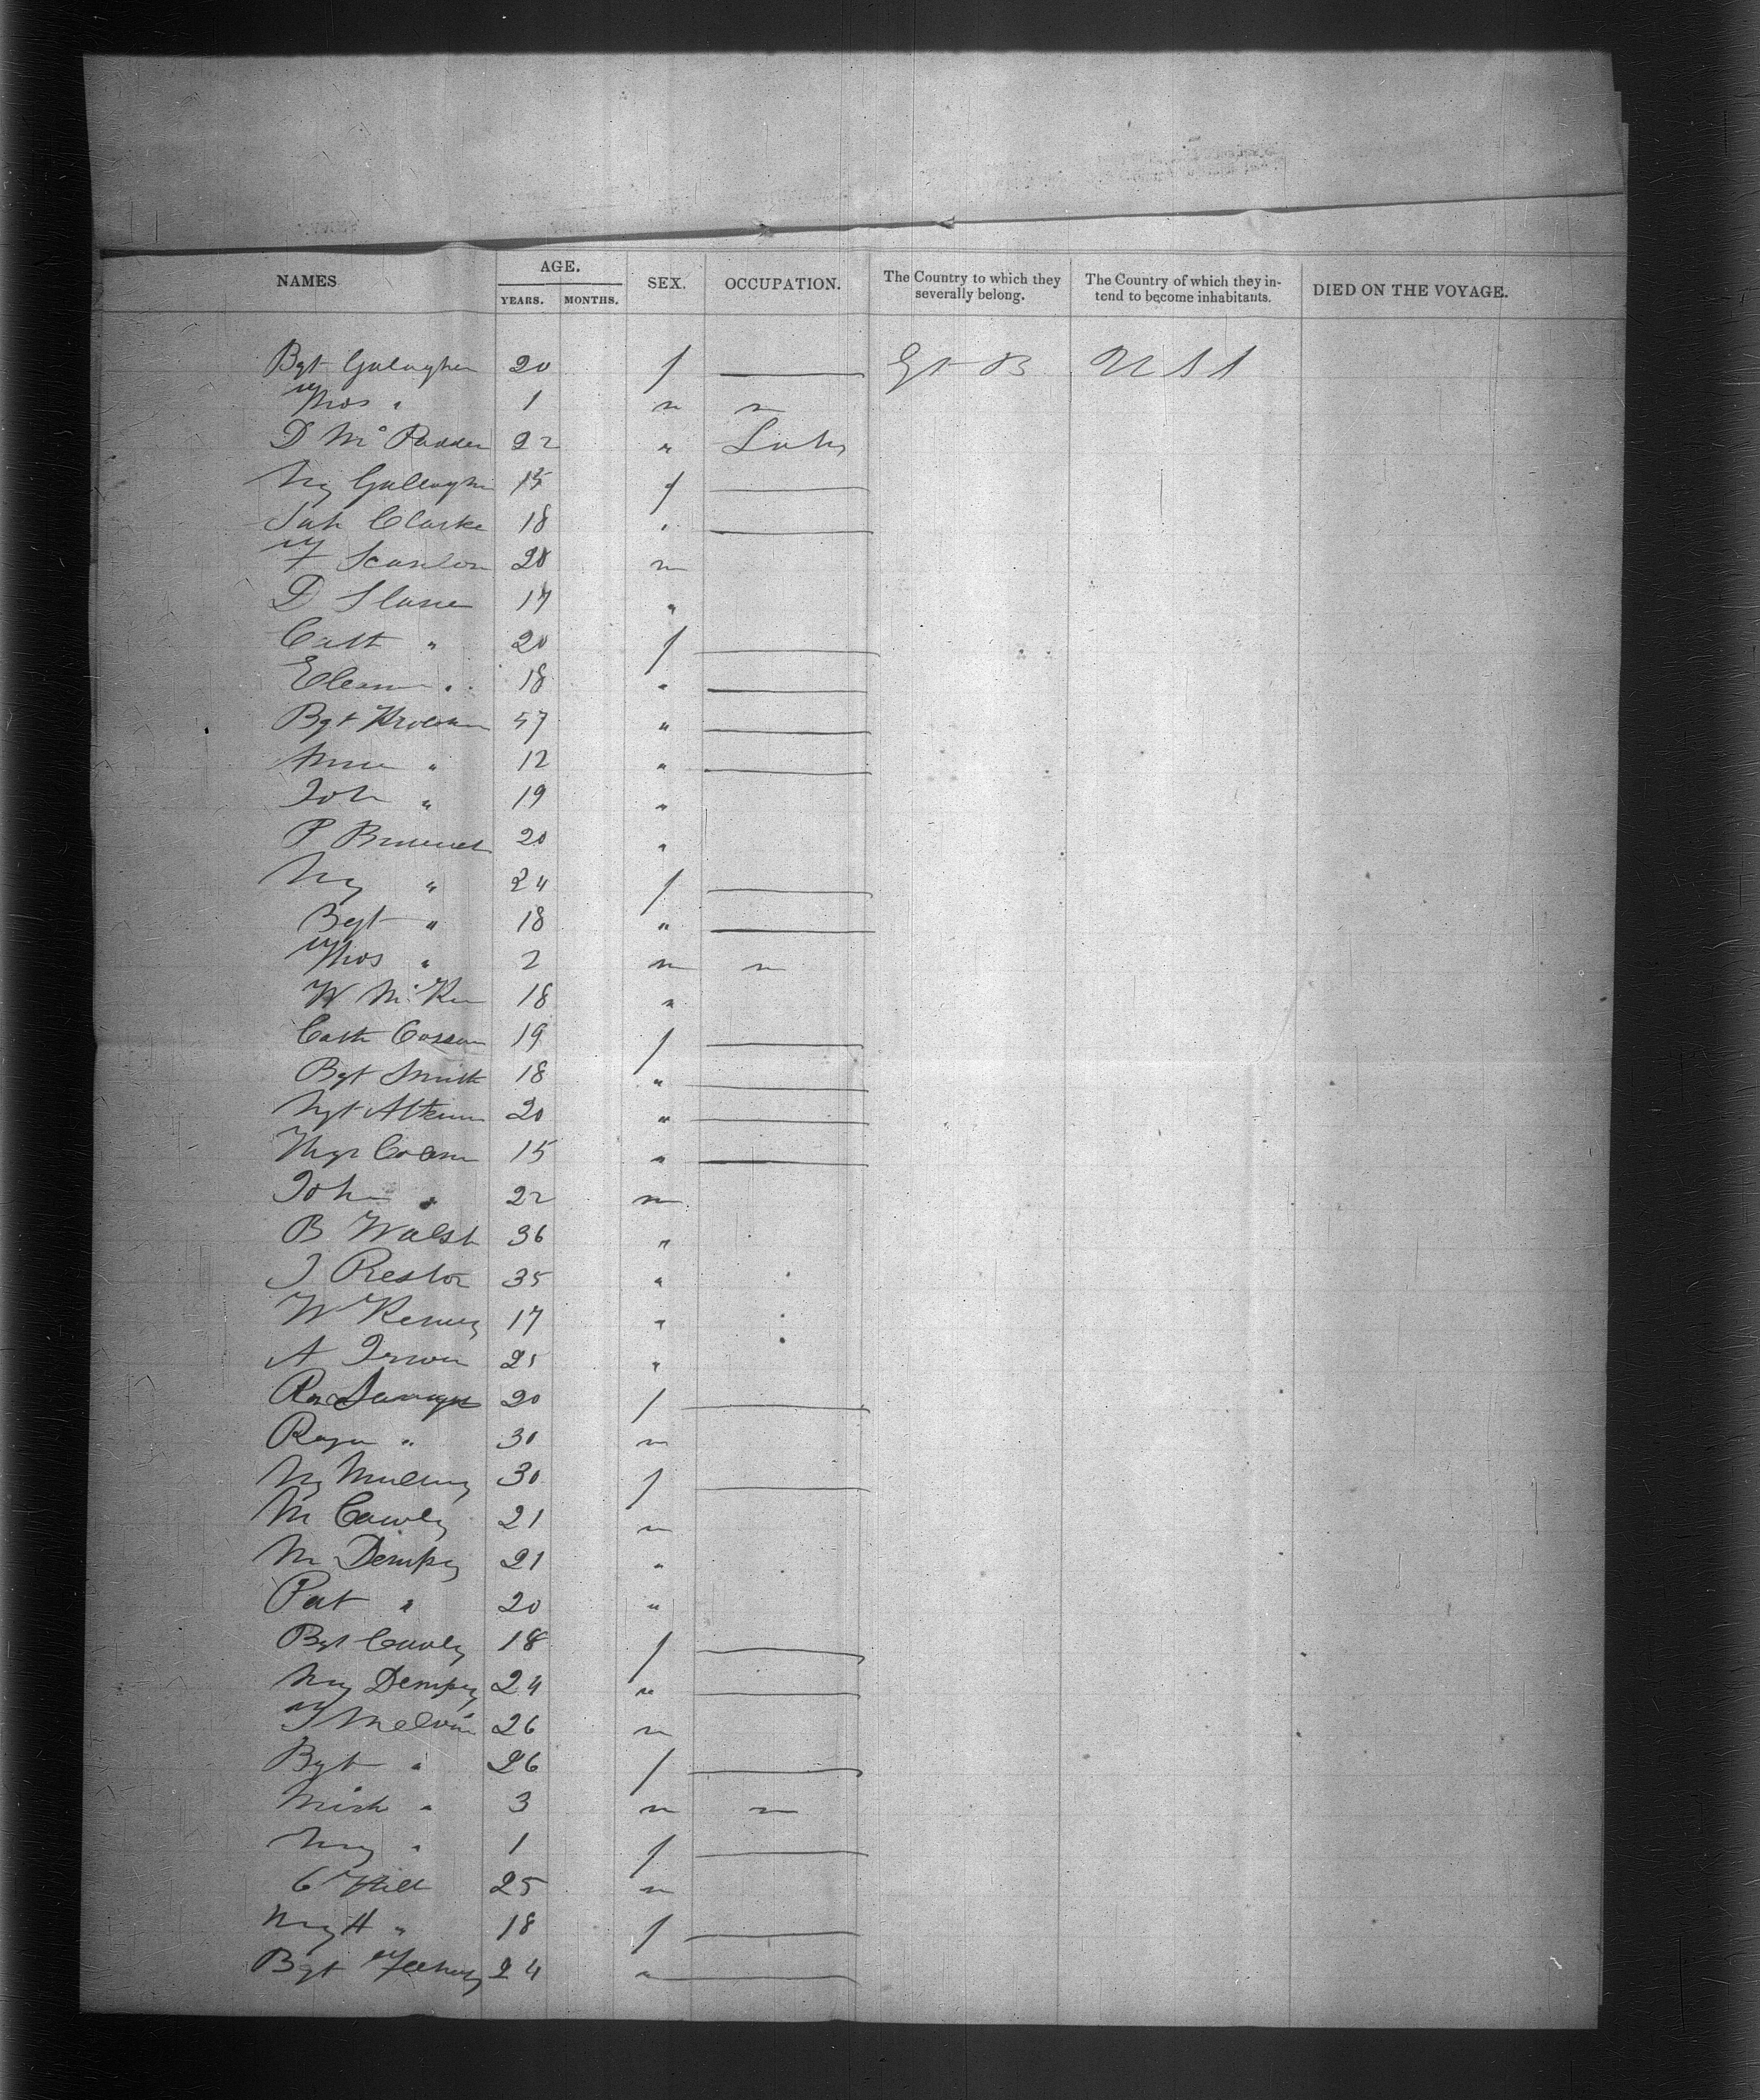 NAMES AGE. YEARS. MONTHS. SEX. OCCUPATION. The Country to which they severally belong. The Country of which they intend to become inhabitants. DIED ON THE VOYAGE.
Bgt Galagher 20 f — Gt B U S A
Thos " 1 m "
D McPadden 22 " Labr
My Gallagher 15 f —
Sah Clarke 18 " —
T Scanlon 20 m
D Slane 17 "
Cath " 20 f —
Eleanor " 18 " —
Bgt 57 " —
" 12 " —
John " 19 "
P 20 "
My " 24 f —
Bgt " 18 " —
Thos " 2 m "
W McKee 18 "
Cath 19 f —
Bgt Smith 18 " —
Mgt 20 " —
15 " —
John " 22 m
B Walsh 36 "
J Preston 35 "
W Kenny 17 "
A Irwin 25 "
20 f —
" 30 m
My 30 f —
M Cawley 21 m
M Dempsy 21 "
Pat " 20 "
Bgt Cawley 18 f —
My Dempsy 24 " —
T Melvin 26 m
Bgt " 26 f —
Mich " 3 m "
My " 1 f —
C Hill 25 m
My H " 18 f —
Bgt 24 " —